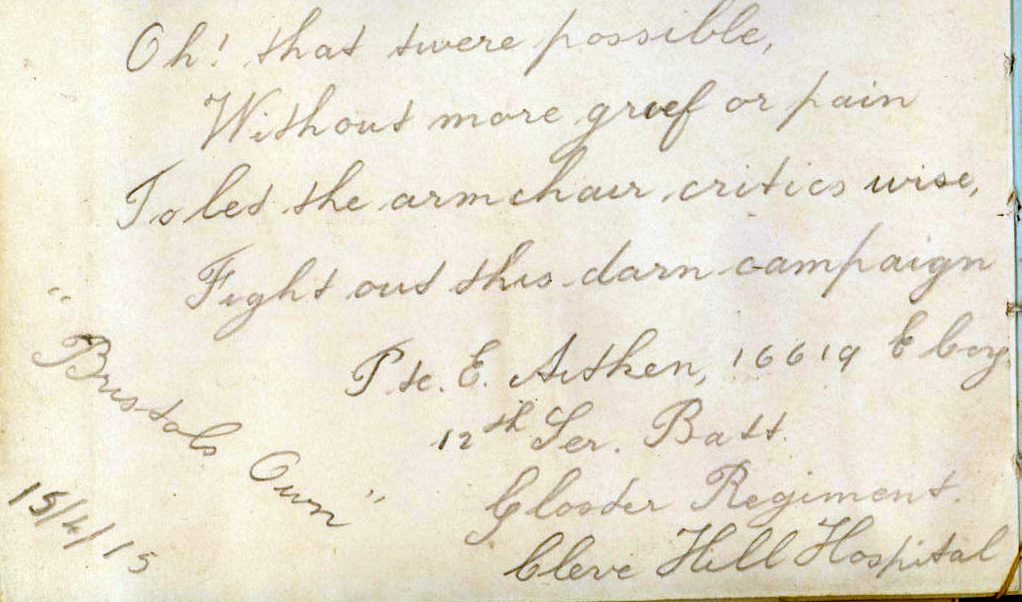 Oh! that twere possible,
Without more grief or pain
To let the armchair critics wise,
Fight out this darn campaign
Pte. E. Aitken, 16619 E Coy.
12th Ser. Batt.
Gloster Regiment.
Cleve Hill Hospital
"Bristols Own"
15/4/15